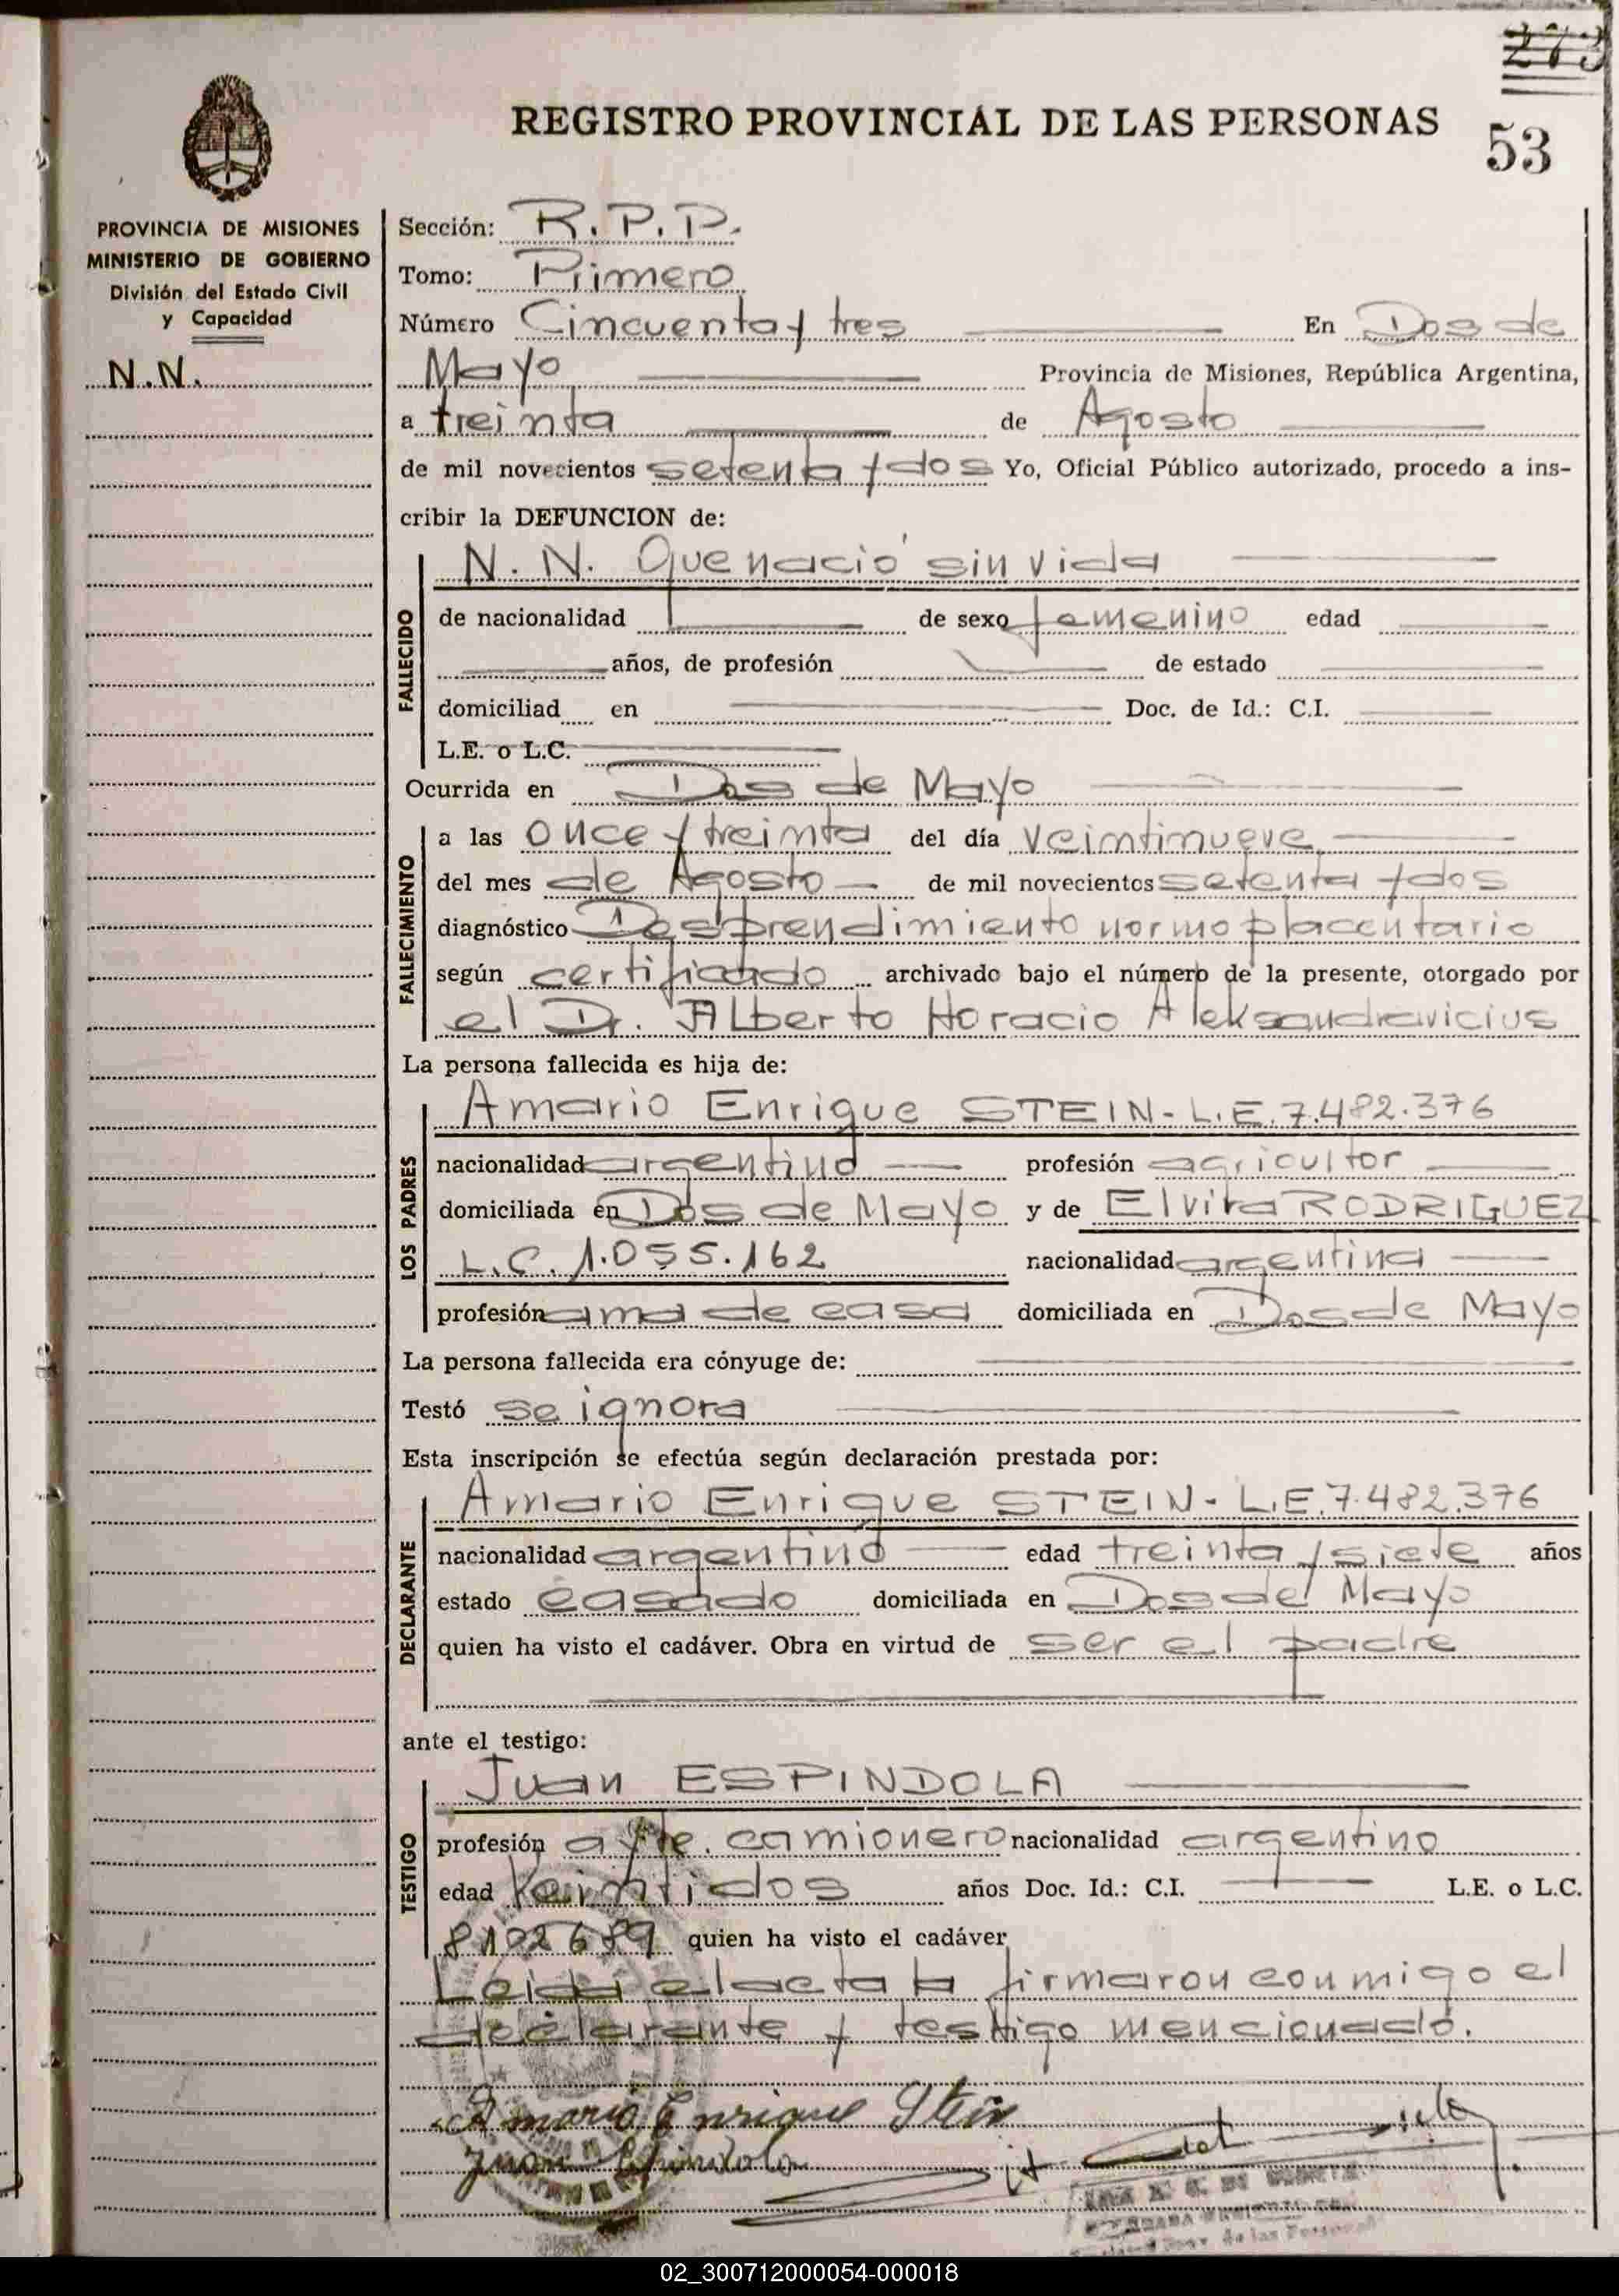 273
REGISTRO PROVINCIAL DE LAS PERSONAS
53
PROVINCIA DE MISIONES
MINISTERIO DE GOBIERNO
División del Estado Civil
y Capacidad
N.N.
Sección: R.P.P.
Tomo: Primero
Número Cincuenta y tres En Dos de
Mayo Provincia de Misiones, República Argentina,
a treinta de Agosto
de mil novecientos setenta y dos Yo, Oficial Público autorizado, procedo a ins-
cribir la DEFUNCION de:
N. N. Que nació sin vida
FALLECIDO
de nacionalidad de sexo femenino edad
años, de profesión de estado
domiciliad en Doc. de Id.: C.I.
L.E. o L.C.
Ocurrida en Dos de Mayo
FALLECIMIENTO
a las once y treinta del día veintinueve
del mes de Agosto de mil novecientos setenta y dos
diagnóstico Desprendimiento normo placentario
según certificado archivado bajo el número de la presente, otorgado por
el Dr. Alberto Horacio Aleksandravicius
La persona fallecida es hija de:
LOS PADRES
Amario Enrique STEIN - L.E. 7.482.376
nacionalidad argentino profesión agricultor
domiciliada en Dos de Mayo y de Elvira RODRIGUEZ
L.C. 1.055.162 nacionalidad argentina
profesión ama de casa domiciliada en Dos de Mayo
La persona fallecida era cónyuge de:
Testó se ignora
Esta inscripción se efectúa según declaración prestada por:
DECLARANTE
Amario Enrique STEIN - L.E. 7.482.376
nacionalidad argentino edad treinta y siete años
estado casado domiciliada en Dos de Mayo
quien ha visto el cadáver. Obra en virtud de ser el padre
ante el testigo:
TESTIGO
Juan ESPINDOLA
profesión ayte. camionero nacionalidad argentino
edad Veintidos años Doc. Id.: C.I. L.E. o L.C.
8102689 quien ha visto el cadáver
Leida el acta la firmaron conmigo el
declarante y testigo mencionado.
Amario Enrique Stein
Juan Espindola
02_300712000054-000018